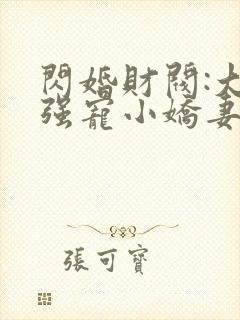 閃婚財閥:大
强寵小嬌妻
張可寶